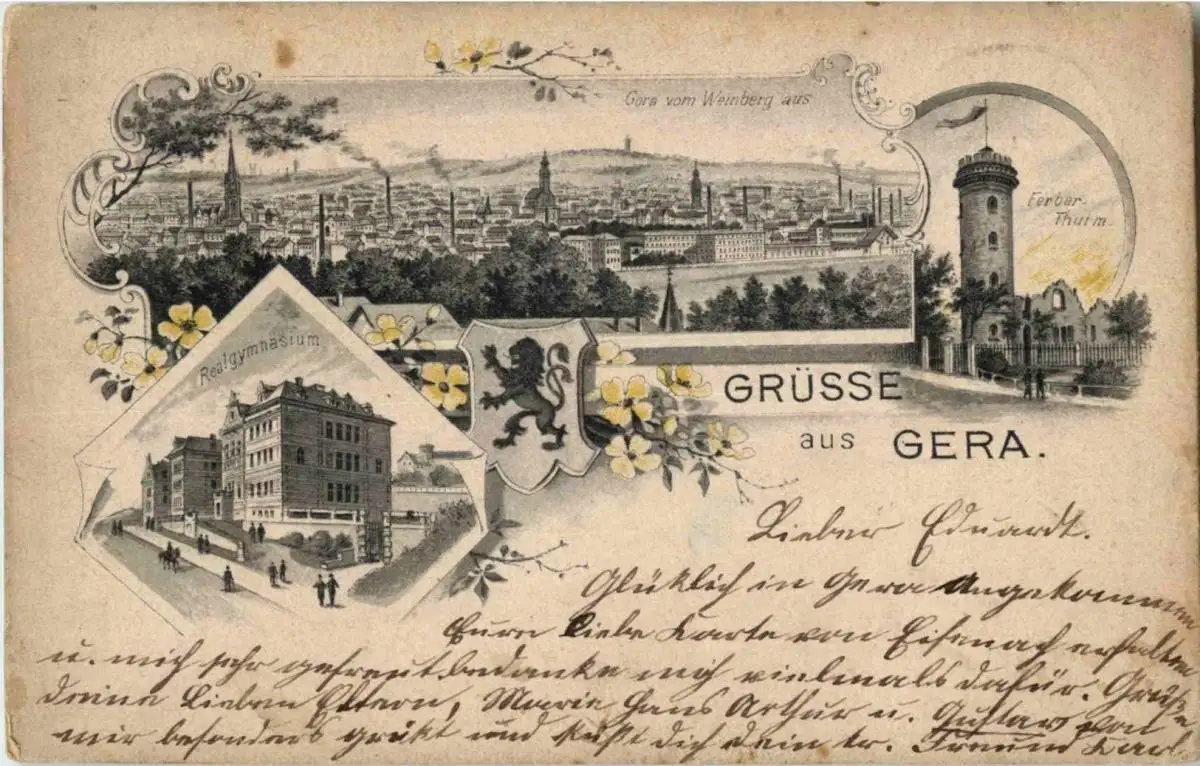 Gera vom Weinberg aus
Ferber-
Thurm.
Realgymnasium
GRÜSSE
aus GERA.
Lieber Eduardt.
Glüklich in Gera Angekommen
Eure Liebe Karte von Eisenach erhalten
u. mich sehr gefreut bedanke mich vielmals dafür. Grüße
deine Lieben Eltern, Marie Hans Arthur u. Gustav von
mir besonders grüßt und küßt Dich Dein tr. Freund Karl